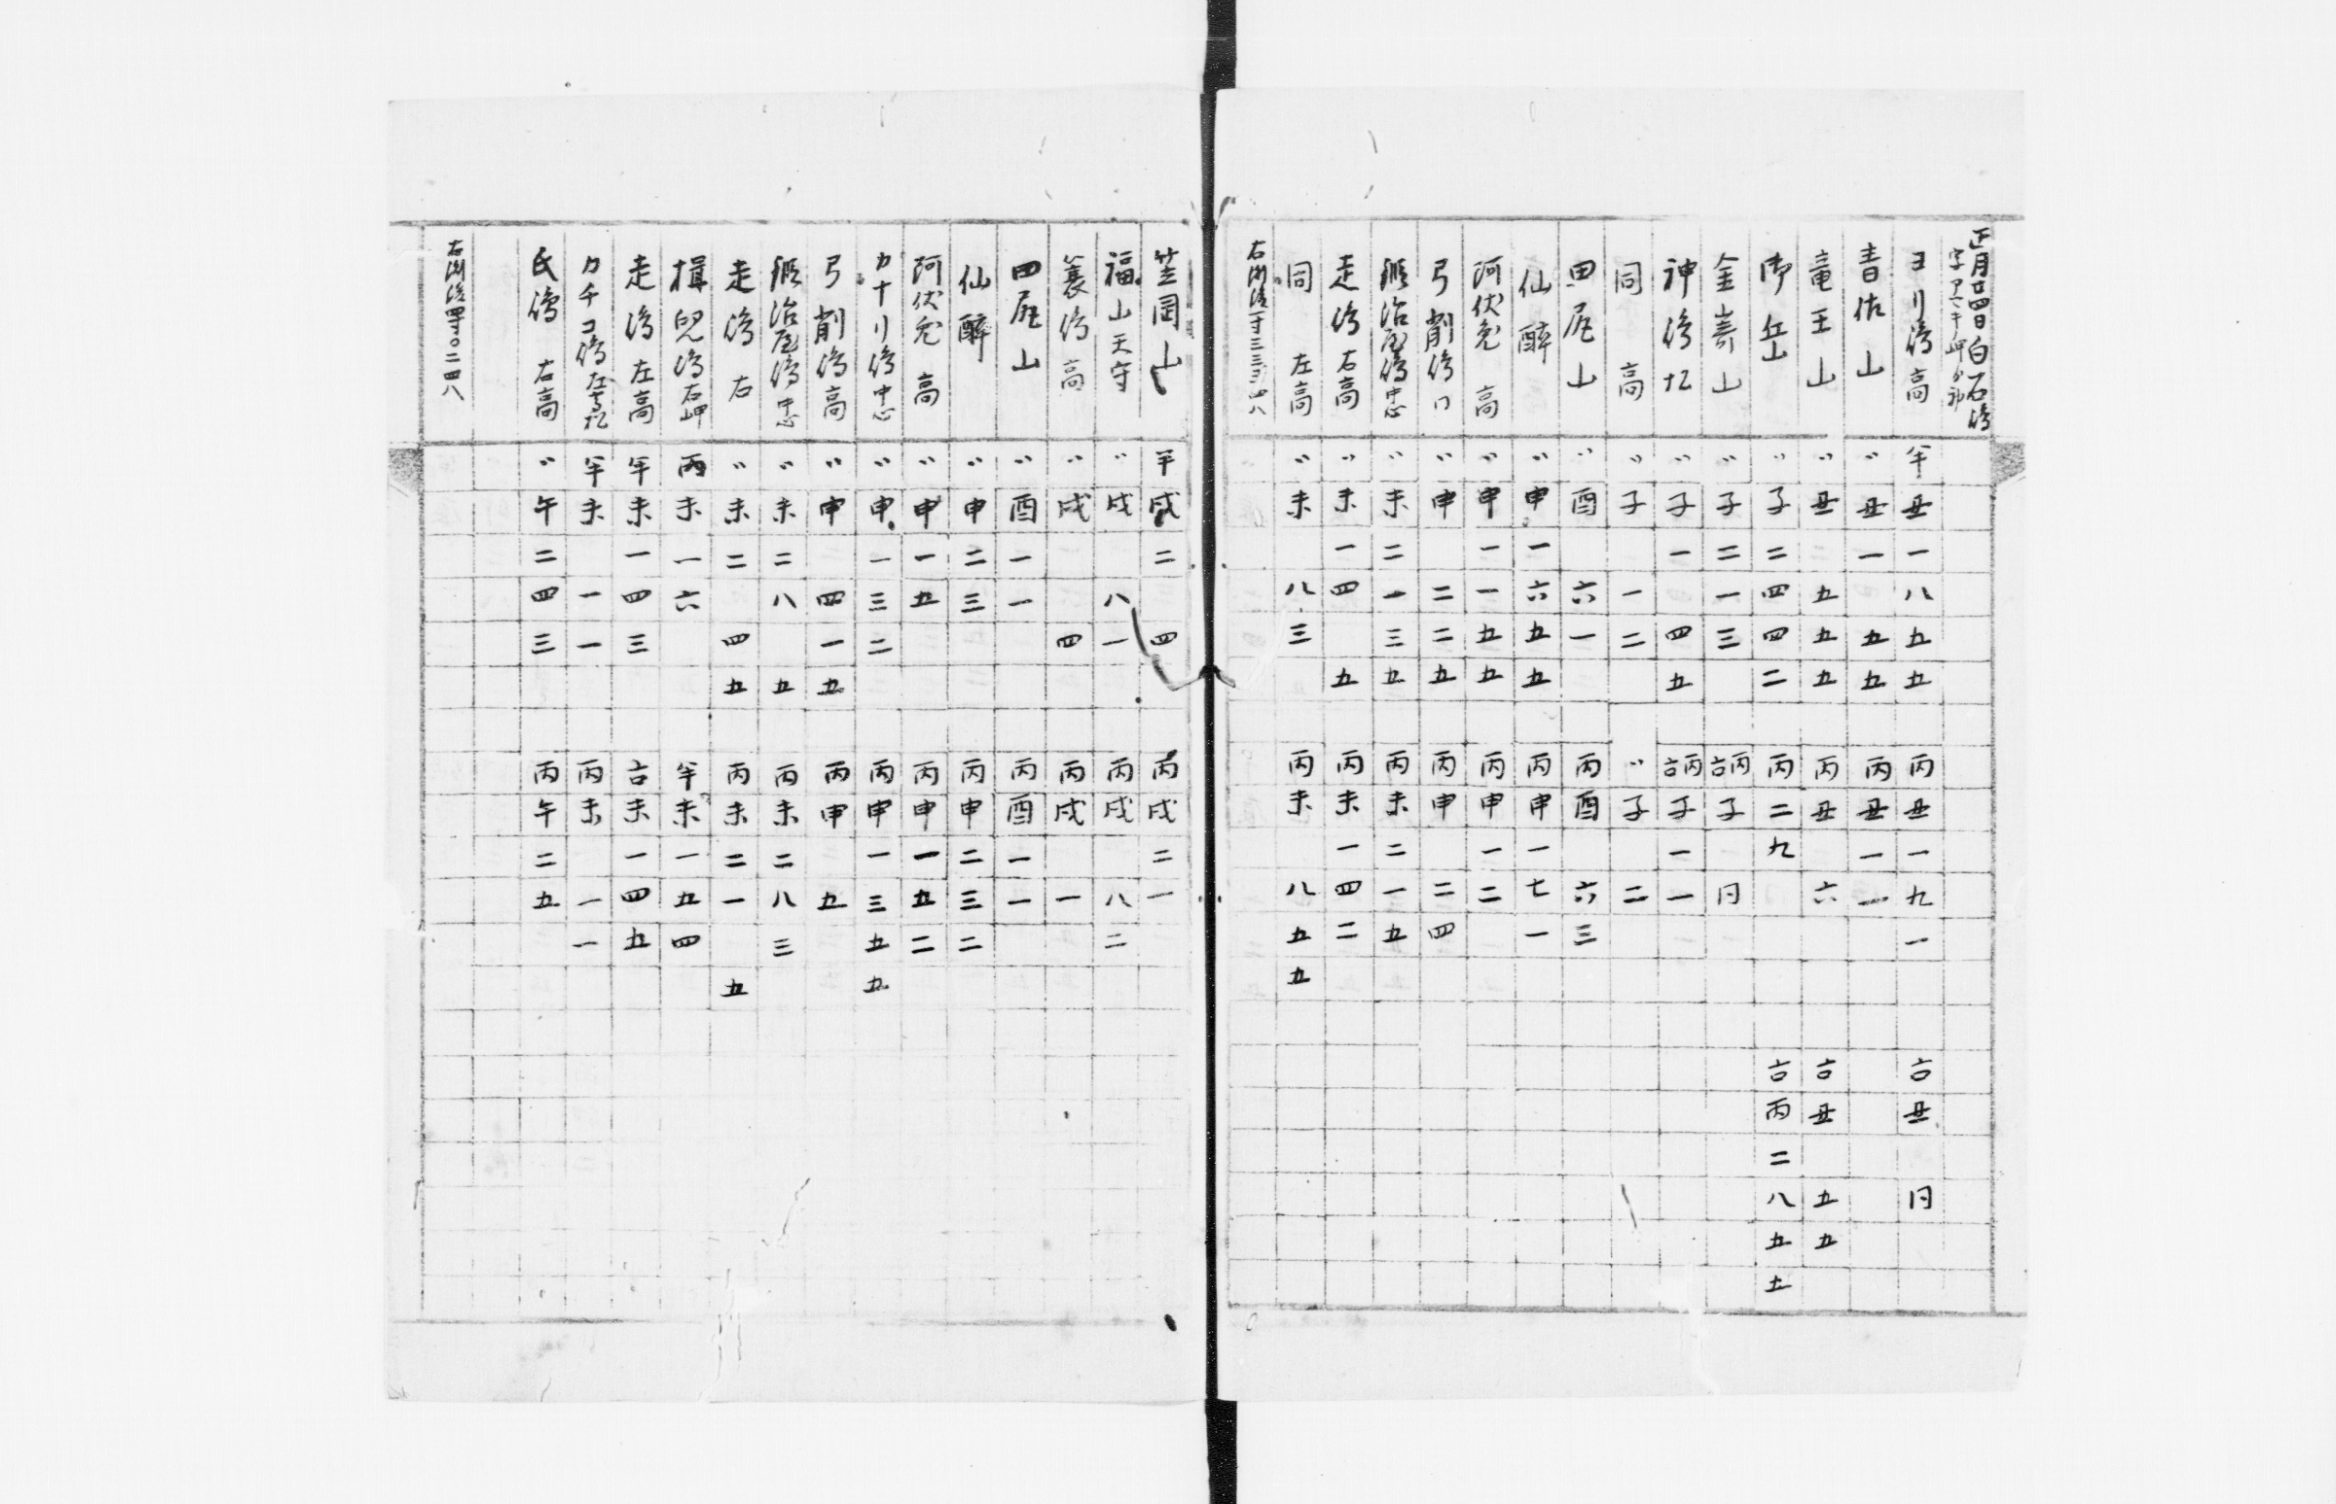 正月廿四日白石島
ヨリ島高 半丑一八五五 丙丑一九一 古丑 円
青佐山 〃丑一 五五 丙丑一一
竜王山 〃丑 五五五 丙丑 六 古丑 五五
御岳 〃子二四四二 丙二九 古丙二八五五
金嵜山 〃子二一三 古丙子 円
神島 〃子一 四五 古丙子一一
同 高 〃子 一二 〃子 二
田尻山 〃酉 六一 丙酉 六三
仙酔 〃申一六五五 丙申一七一
阿伏兔 高 〃申一一五五 丙申一二
弓削島 〃申 二二五 丙申 二四
鍛治屋島中忠 〃未二一三五 丙未二一五
走島右高 〃未一四 五 丙未一四二
同 左高 〃未 八三 丙未 八五五
笠岡山 半戌二 四 丙戌二一
福山天守 〃戌 八一 丙戌 八二
簑島 高 〃戌 四 丙戌 一
田尻山 〃酉一一 丙酉一一
仙酔 〃申二三 丙申二三二
阿伏兔 高 〃申一五 丙申一五二
カナリ島中忠 〃申一三二 丙申一三五五
弓削島高 〃申 四一五 丙申 五
鍛治屋島中忠 〃未二八 五 丙未二八三
走島 右 〃未二 四五 丙未二一 五
楫兒島右岬 丙未一六 半未一五四
走島左高 半未一四三 古未一四五
カチコ島 半未 一一 丙未 一一
氏島 右高 〃午二四三 丙午二五